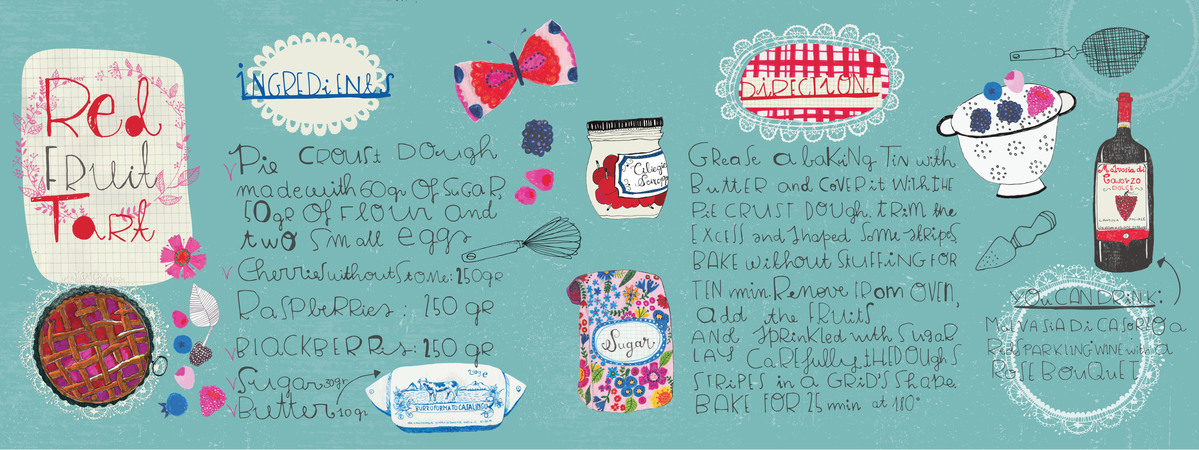 Red
FRUit
TaRt
iNGREDiENtS
Pie CROUSt DOUGH
made with 60gr OF SUGAR,
150gr OF FLOUR and
two Small eggs
Cherries without Stone: 250gr
RaSpberries: 150 gr
BlACKBERRis: 150 gr
Sugar 30gr
Butter 10 gr
250g e
BURRO FORMATO CASALINGO
Ciliegie
Sciroppo
Sugar
DiRECtiONS
GREaSe a baKiNG TiN with
BuTTER and COVER it WitH tHE
PiE CRUST DOUGH. tRiM the
EXCESS and Shaped Some stripes
BAKE without StUFFiNG FOR
TEN min. Remove FRom OVEN,
add the FRUits
AND Sprinkled with SUGaR
LAY CaREfully tHE DOUGH S
StRiPES in a GRiD'S Shape.
BAKE FOR 25 min at 180°
Malvasia di
Casorzo
DOLCE
YOU CAN DRiNK:
MalVaSia Di CaSORZO a
Red SPARKiNG WiNE with a
ROSE BOUQUET